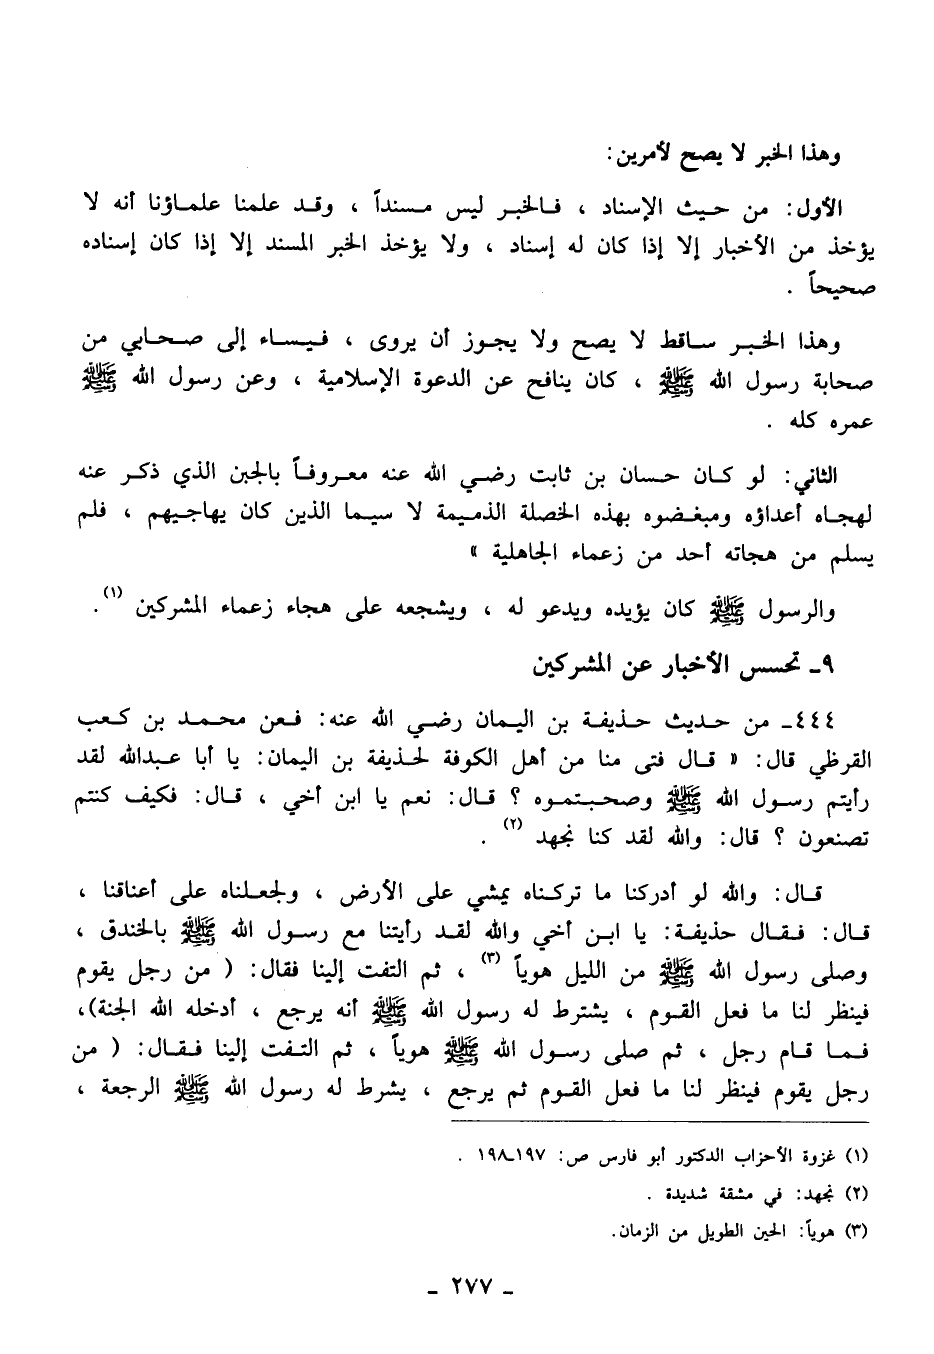 وهذا الخبر لا يصح لأمرين:
الأول: من حيث الإسناد ، فالخبر ليس مسنداً ، وقد علمنا علماؤنا أنه لا
يؤخذ من الأخبار إلا إذا كان له إسناد ، ولا يؤخذ الخبر المسند إلا إذا كان إسناده
صحيحاً .
وهذا الخبر ساقط لا يصح ولا يجوز أن يروى ، فيساء إلى صحابي من
صحابة رسول الله ﷺ ، كان ينافح عن الدعوة الإسلامية ، وعن رسول الله ﷺ
عمره كله .
الثاني: لو كان حسان بن ثابت رضي الله عنه معروفاً بالجبن الذي ذكر عنه
لهجاه أعداؤه ومبغضوه بهذه الخصلة الذميمة لا سيما الذين كان يهاجيهم ، فلم
يسلم من هجائه أحد من زعماء الجاهلية »
والرسول ﷺ كان يؤيده ويدعو له ، ويشجعه على هجاء زعماء المشركين (١).
٩ـ تحسس الأخبار عن المشركين
٤٤٤ـ من حديث حذيفة بن اليمان رضي الله عنه: فعن محمد بن كعب
القرظي قال: « قال فتى منا من أهل الكوفة لحذيفة بن اليمان: يا أبا عبدالله لقد
رأيتم رسول الله ﷺ وصحبتموه ؟ قال: نعم يا ابن أخي ، قال: فكيف كنتم
تصنعون ؟ قال: والله لقد كنا نجهد (٢) .
قال: والله لو أدركنا ما تركناه يمشي على الأرض ، ولجعلناه على أعناقنا ،
قال: فقال حذيفة: يا ابن أخي والله لقد رأيتنا مع رسول الله ﷺ بالخندق ،
وصلى رسول الله ﷺ من الليل هوياً (٣) ، ثم التفت إلينا فقال: ( من رجل يقوم
فينظر لنا ما فعل القوم ، يشترط له رسول الله ﷺ أنه يرجع ، أدخله الله الجنة)،
فما قام رجل ، ثم صلى رسول الله ﷺ هوياً ، ثم التفت إلينا فقال: ( من
رجل يقوم فينظر لنا ما فعل القوم ثم يرجع ، يشرط له رسول الله ﷺ الرجعة ،
(١) غزوة الأحزاب الدكتور أبو فارس ص: ١٩٧ـ١٩٨ .
(٢) نجهد: في مشقة شديدة .
(٣) هوياً: الحين الطويل من الزمان.
ـ ٢٧٧ ـ